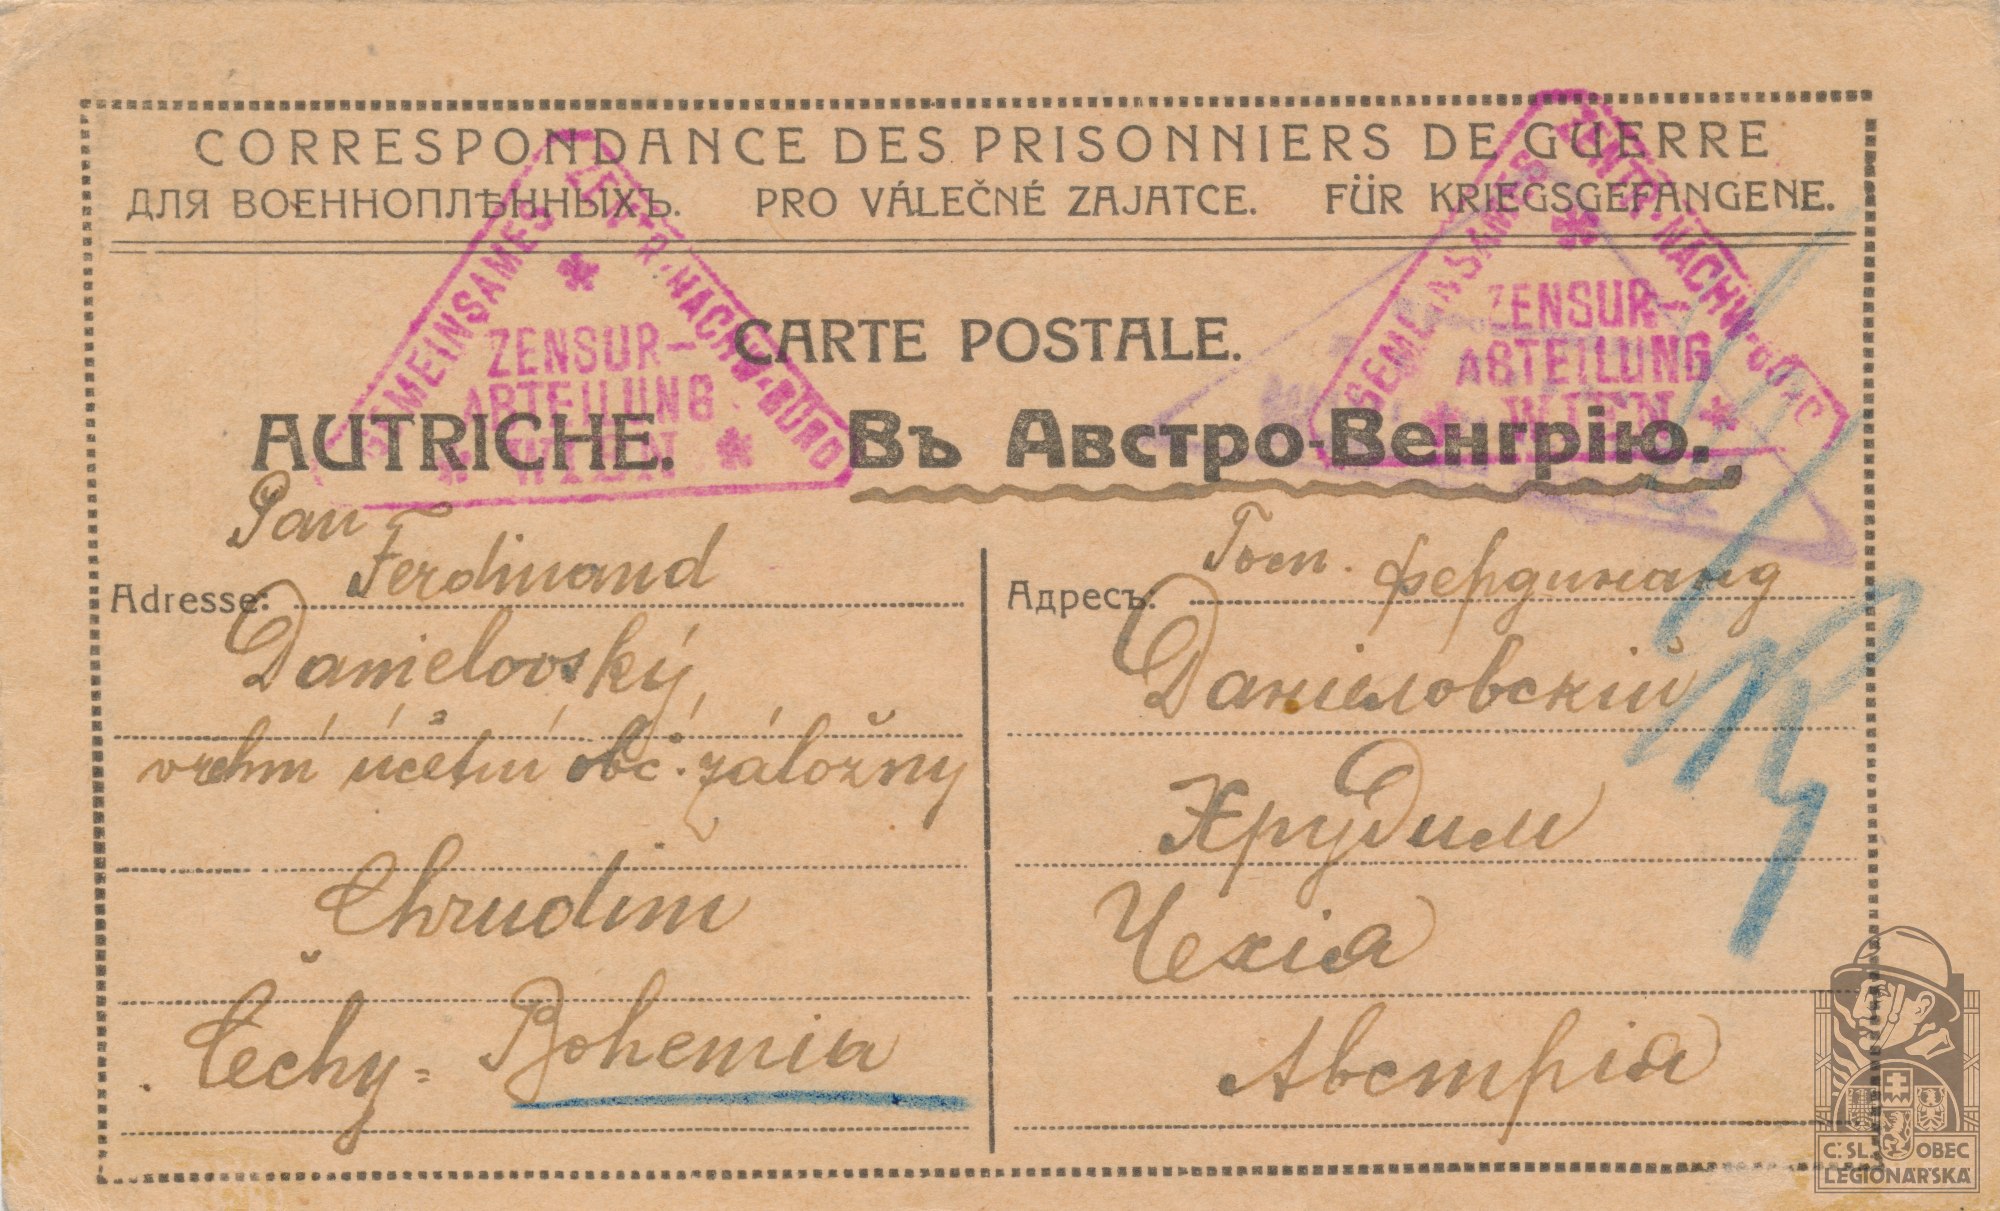 CORRESPONDANCE DES PRISONNIERS DE GUERRE
ДЛЯ ВОЕННОПЛѢННЫХЪ. PRO VÁLEČNÉ ZAJATCE. FÜR KRIEGSGEFANGENE.
GEMEINSAMES ZENTR.NACHW.BURO
ZENSUR-
ABTEILUNG
WIEN
GEMEINSAMES ZENTR.NACHW.
ZENSUR-
ABTEILUNG
WIEN
CARTE POSTALE.
AUTRICHE. Въ Австро-Венгрію.
Pan
Adresse: Ferdinand
Danielovský,
vrchní účetní obč. záložny
Chrudim
Čechy = Bohemia
Адресъ: Фердинанд
Даніеловскій
Хрудим
Чехія
Австрія
Č. SL. OBEC
LEGIONÁŘSKÁ